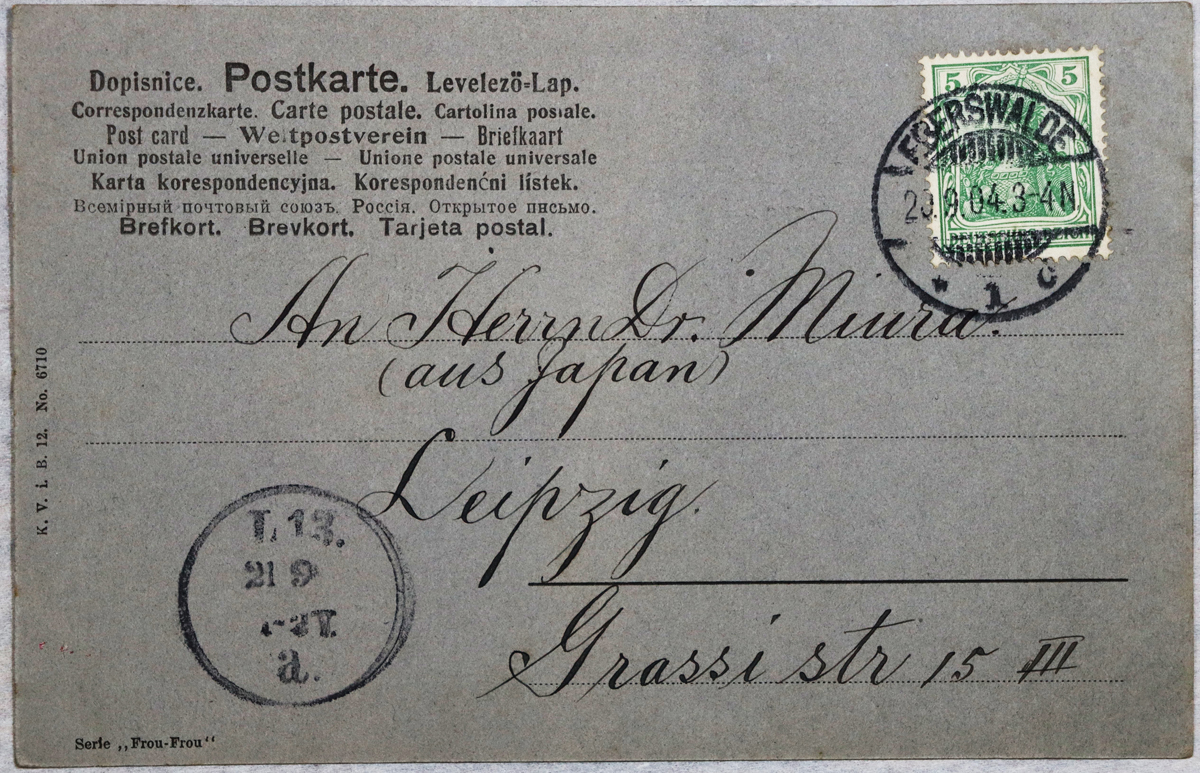 Dopisnice. Postkarte. Levelező-Lap.
Correspondenzkarte. Carte postale. Cartolina postale.
Post card — Weltpostverein — Briefkaart
Union postale universelle — Unione postale universale
Karta korespondencyjna. Korespondenćni lístek.
Всемірный почтовый союзъ. Россія. Открытое письмо.
Brefkort. Brevkort. Tarjeta postal.
5 5
EGERSWALDE
9.04.3-4N
DEUTSCHES REICH
* 1 c
An Herrn Dr. Miura.
(aus Japan)
Leipzig.
Grassi str 15 III
L 13.
21 9
a.
K. V. i. B. 12. No. 6710
Serie „Frou-Frou“